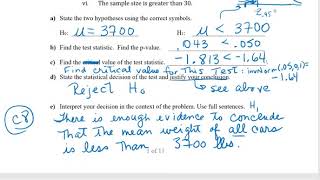 vi. The sample size is greater than 30.
2.45"
a) State the two hypotheses using the correct symbols.
H₀: μ = 3700 μ < 3700
b) Find the test statistic. Find the p-value. .043 < .050
c) Find the value of the test statistic. -1.813 < -1.64
Find critical value for This Test: invNorm(.05,0,1) = -1.64
d) State the statistical decision of the test and justify your conclusion.
Reject H₀ → see above
e) Interpret your decision in the context of the problem. Use full sentences. H₁
C8 There is enough evidence to conclude
That the mean weight of all cars
is less Than 3700 lbs.
1 of 11